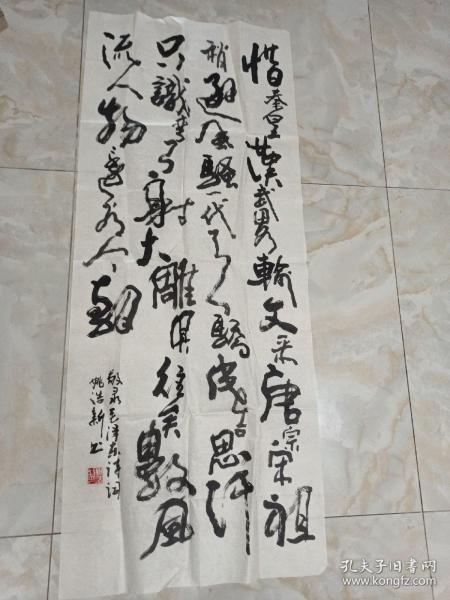 惜秦皇汉武略输文采唐宗宋祖
稍逊风骚一代天骄成吉思汗
只識弯弓射大雕俱往矣數风
流人物還看今朝
敬录毛泽东诗词
姚浩新书
孔夫子旧书网
www.kongfz.com